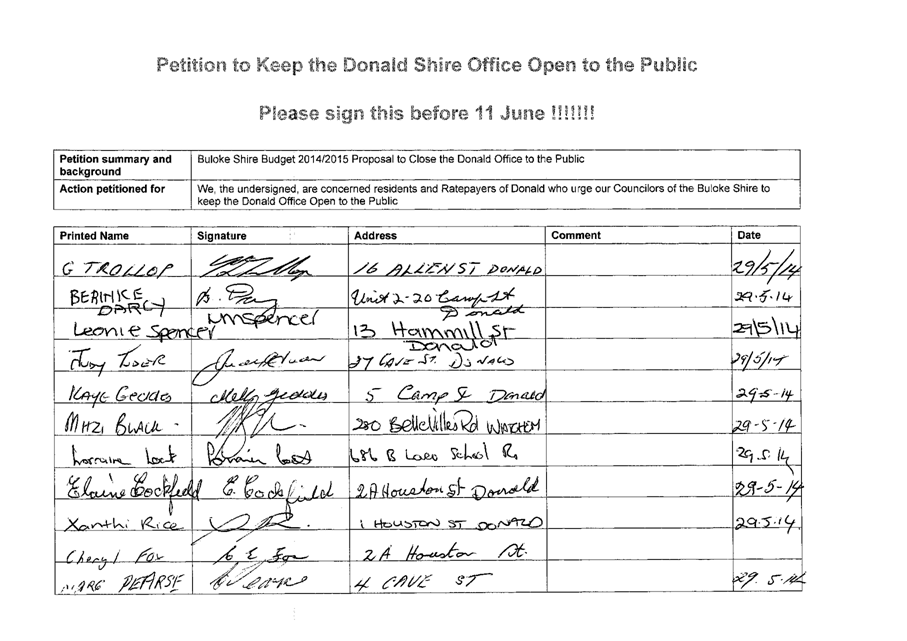 Petition to Keep the Donald Shire Office Open to the Public
Please sign this before 11 June !!!!!!!
Petition summary and background Buloke Shire Budget 2014/2015 Proposal to Close the Donald Office to the Public
Action petitioned for We, the undersigned, are concerned residents and Ratepayers of Donald who urge our Councilors of the Buloke Shire to
keep the Donald Office Open to the Public
Printed Name Signature Address Comment Date
G TROLLOP 16 ALLEN ST DONALD 29/5/14
BERNICE DARCY B. Unit 2-20 Camp St Donald 29.5.14
Leonie Spencer LMSpencer 13 Hammill St Donald 29/5/14
37 CAVE ST. DONALD 29/5/14
KAYE Geddes Geddes 5 Camp St Donald 29-5-14
BLACK 280 Rd WATCHEM 29-5-14
Lorraine 686 B School Rd 29.5.14
Elaine Cockfield E. Cockfield 2A Houston St Donald 29-5-14
Xanthi Rice 1 HOUSTON ST DONALD 29.5.14
Cheryl Fox C E Fox 2A Houston St.
MARG PEARSE Pearse 4 CAVE ST 29.5.14